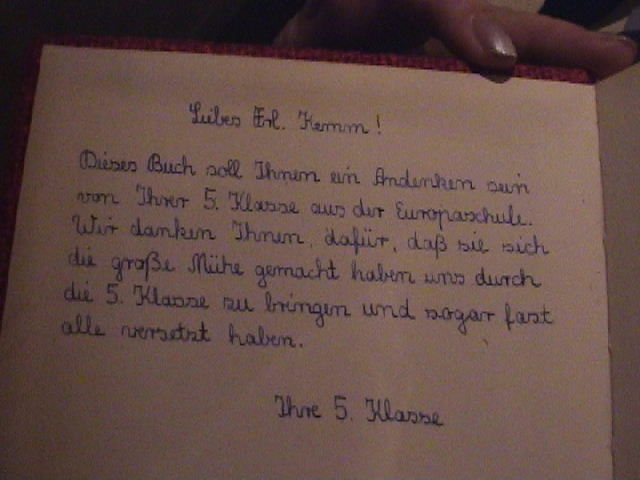 Liebes Frl. Kemm!
Dieses Buch soll Ihnen ein Andenken sein
von Ihrer 5. Klasse aus der Europaschule.
Wir danken Ihnen, dafür, daß sie sich
die große Mühe gemacht haben uns durch
die 5. Klasse zu bringen und sogar fast
alle versetzt haben.
Ihre 5. Klasse